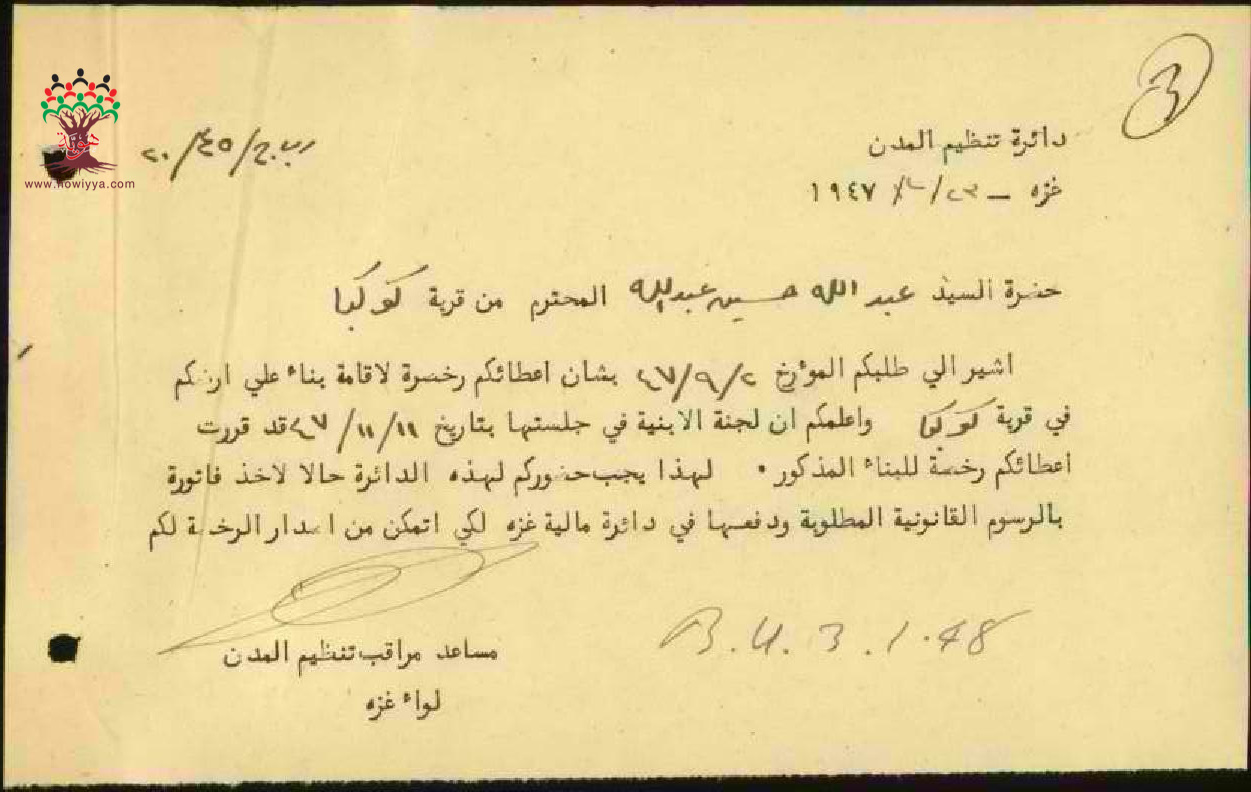 3
دائرة تنظيم المدن
غزه – ٢٣/ /١٩٤٧
/٤٥/٢٠
www.howiyya.com
حضرة السيد عبد الله حسين عبدالله المحترم من قرية كوكبا
اشير الي طلبكم المؤرخ ٤٧/٩/٢ بشان اعطائكم رخصة لاقامة بناء علي ارضكم
في قرية كوكبا واعلمكم ان لجنة الابنية في جلستها بتاريخ ٤٧/١١/١١ قد قررت
اعطائكم رخصة للبناء المذكور . لهذا يجب حضوركم لهذه الدائرة حالا لاخذ فاتورة
بالرسوم القانونية المطلوبة ودفعها في دائرة مالية غزه لكي اتمكن من اصدار الرخصة لكم
B.U. 3.1.48
مساعد مراقب تنظيم المدن
لواء غزه